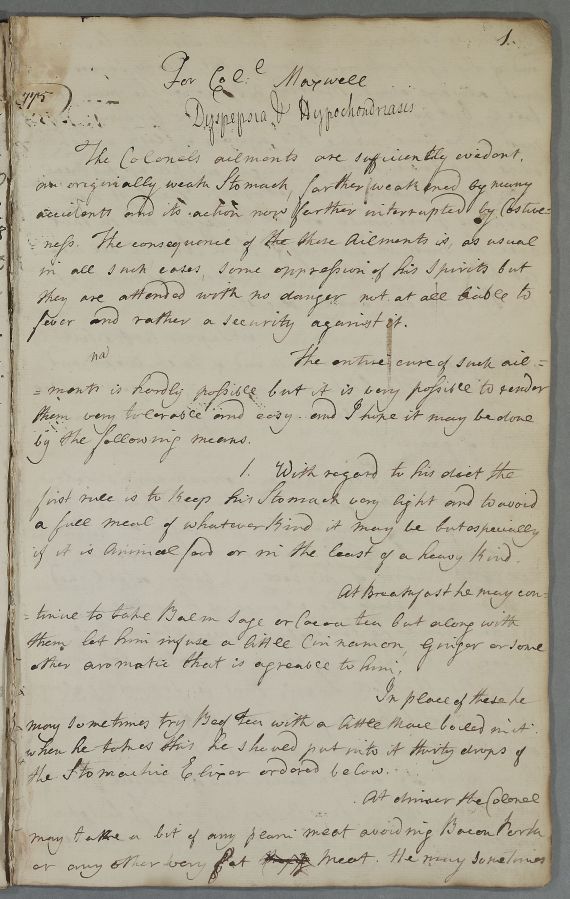 1.
For Col:l Maxwell
775
Dyspepsia & Hypochondriasis
The Colonels ailments are sufficiently evident.
an originally weak Stomach, farther weakened by many
accidents and its action now farther interrupted by Costive=
=ness. The consequence of the these Ailments is, as usual
in all such cases, some oppression of his Spirits but
they are attended with no danger not at all liable to
fever and rather a security against it.
The entire cure of such ail=
=ments is hardly possible but it is very possible to render
them very tolerable and easy and I hope it may be done
by the following means.
1. With regard to his diet the
first rule is to keep his Stomach very light and to avoid
a full meal of whatever kind it may be but especially
if it is Animal food or in the least of a heavy kind.
At Breakfast he may con=
=tinue to take Balm Sage or Cocoa tea but along with
them let him infuse a little Cinnamon, Ginger or some
other aromatic that is agreable to him.
In place of these he
may sometimes try Beef tea with a little Mace boiled in it.
when he takes this he should put into it thirty drops of
the Stomachic Elixer ordered below.
At dinner the Colonel
may take a bit of any plain meat avoiding Bacon Pork
or any other very fat meat. He may sometimes